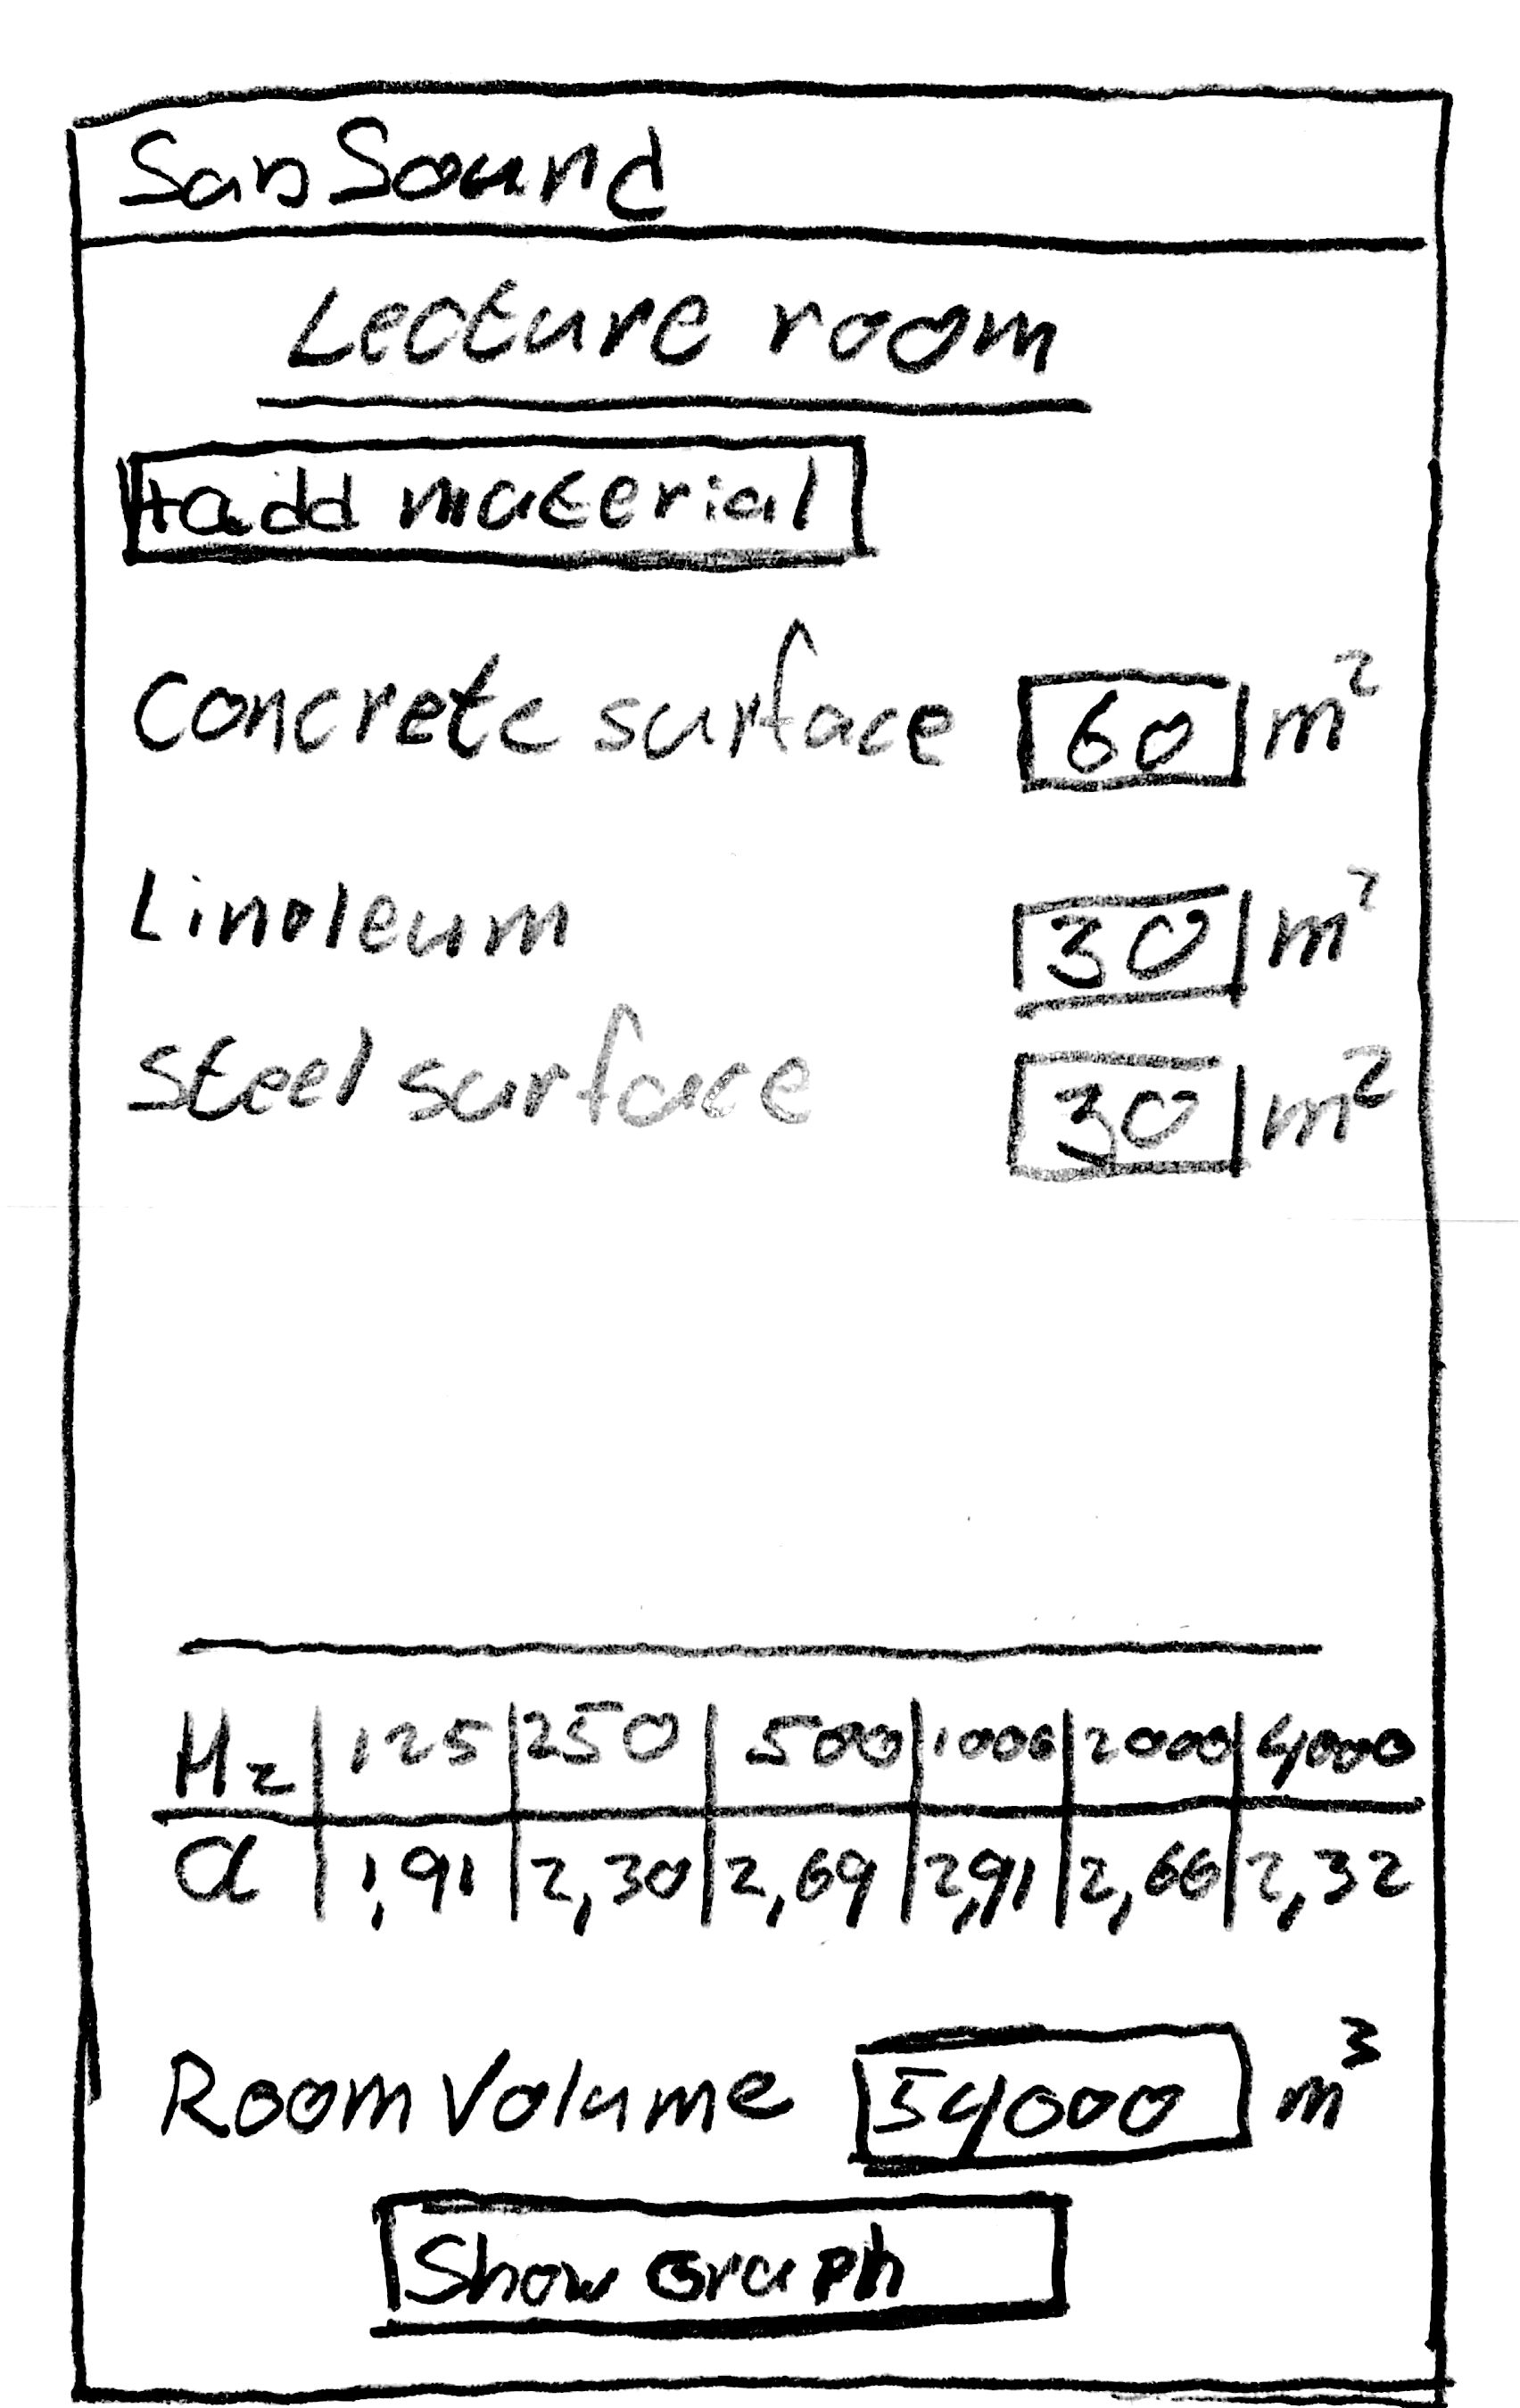 SabSound
Lecture room
+add material
Concrete surface 60 m²
Linoleum 30 m²
Steel surface 30 m²
Hz 125 250 500 1000 2000 4000
α 1,91 2,30 2,69 2,91 2,66 2,32
Room Volume 54000 m³
Show Graph